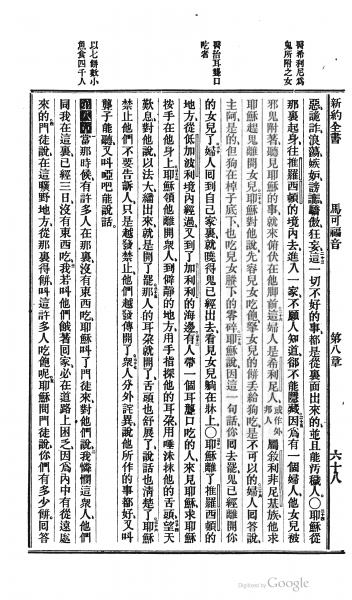 新約全書　馬可福音　第八章　六十八
醫希利尼爲鬼所附之女
醫治耳聾口吃者
以七餅數小魚食四千人
惡詭詐浪蕩嫉妒謗讟驕傲狂妄這一切不好的事都是從裏面出來的並且能污穢人〇耶穌從
那裏起身往推羅西頓的境內去進入一家不願人知道卻不能隱藏因爲有一個婦人他女兒被
邪鬼附著聽見耶穌的事就來俯伏在他腳前這婦人是希利尼人或作外邦人屬敘利非尼基族他求
耶穌趕鬼離開女兒耶穌對他說先容兒女吃飽拏兒女的餅丟給狗吃是不可以的婦人回答說
主阿是的但狗在棹子底下也吃兒女賸下的零碎耶穌說因這一句話你回去罷鬼已經離開你
的女兒了婦人回到自己家裏就曉得鬼已經出去看見女兒躺在牀上〇耶穌離了推羅西頓的
地方從低加波利境內經過又到了加利利的海邊有人帶一個耳聾口吃的人來見耶穌求耶穌
按手在他身上耶穌領他離開衆人到僻靜的地方用手指探他的耳朶用唾沫抹他的舌頭望天
歎息對他說以法大繙出來就是開了罷那人的耳朶就開了舌頭也舒展了說話也清楚了耶穌
禁止他們不要告訴人只是越發禁止他們越發傳開了衆人分外詫異說他所作的事都好又叫
聾子能聽又叫啞吧能說話
第八章當那時候有許多人在那裏沒有東西吃耶穌叫了門徒來對他們說我憐憫這衆人他們
同我在這裏已經三日沒有東西吃我若叫他們餓著回家必在道路上困乏因爲內中有從遠處
來的門徒說在這曠野地方從那裏得餅叫這許多人吃飽呢耶穌問門徒說你們有多少餅回答
Digitized by Google